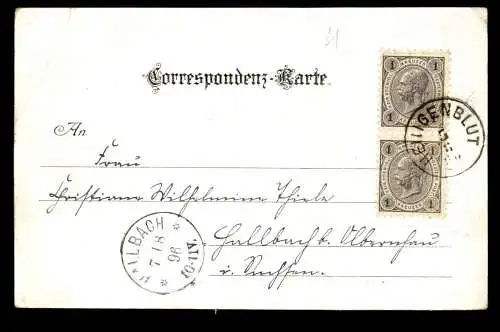 Correspondenz-Karte
An
Frau
Christiane Wilhelmine Thiele
Hallbach b. Olbernhau
i. Sachsen.
1 KREUZER 1
1 1
1 KREUZER 1
1 1
HEILIGENBLUT
HALLBACH
7 / 8
96